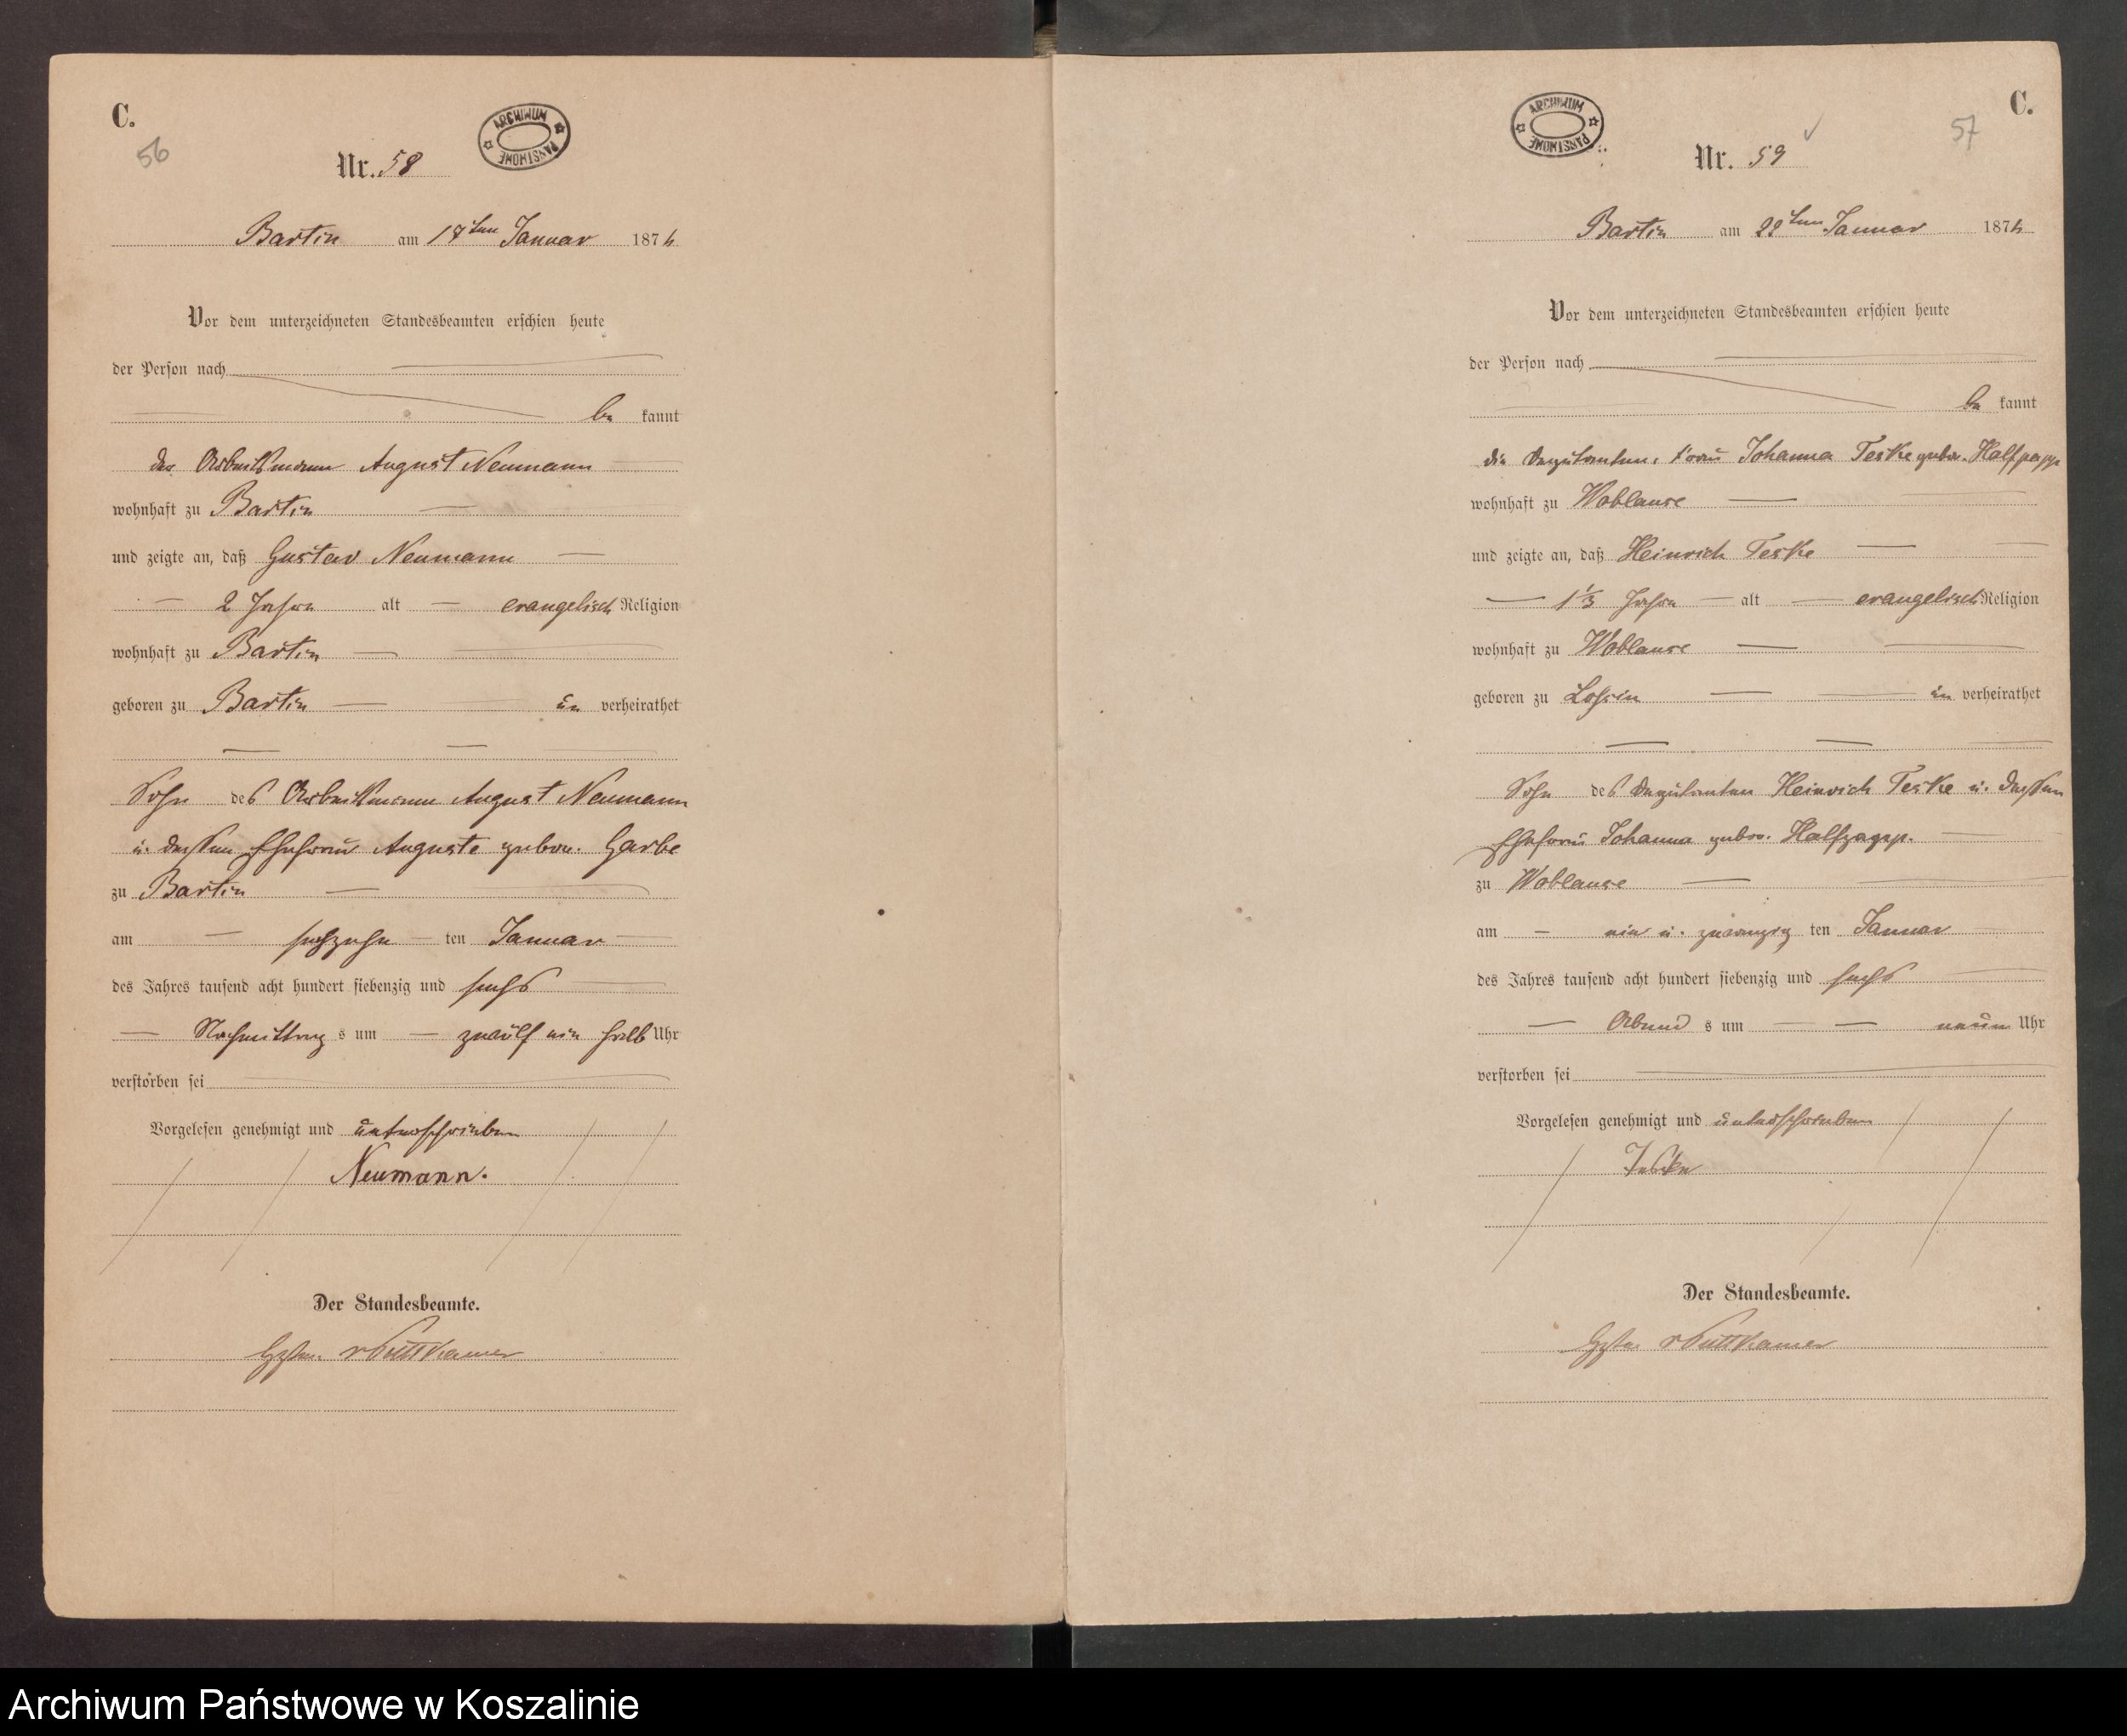 C.
56
ARCHIWUM PAŃSTWOWE
Nr. 58
Bartin am 18ten Januar 1876
Vor dem unterzeichneten Standesbeamten erschien heute
der Person nach
be kannt
der Arbeitsmann August Neumann
wohnhaft zu Bartin
und zeigte an, daß Gustav Neumann
2 Jahre alt evangelisch Religion
wohnhaft zu Bartin
geboren zu Bartin un verheirathet
Sohn des Arbeitsmann August Neumann
u. dessen Ehefrau Auguste gebor. Garbe
zu Bartin
am sechzehn ten Januar
des Jahres tausend acht hundert siebenzig und sechs
Nachmittag s um zwölf ein halb Uhr
verstorben sei
Vorgelesen genehmigt und unterschrieben
Neumann.
Der Standesbeamte.
v Puttkamer
C.
57
ARCHIWUM PAŃSTWOWE
Nr. 59
Bartin am 22ten Januar 1876
Vor dem unterzeichneten Standesbeamten erschien heute
der Person nach
be kannt
die Deputanten Frau Johanna Teske gebor. Halfpapp
wohnhaft zu Woblanse
und zeigte an, daß Heinrich Teske
1 1/3 Jahre alt evangelisch Religion
wohnhaft zu Woblanse
geboren zu Lossin un verheirathet
Sohn des Deputanten Heinrich Teske u. dessen
Ehefrau Johanna gebor. Halfpapp.
zu Woblanse
am ein u. zwanzig ten Januar
des Jahres tausend acht hundert siebenzig und sechs
Abend s um neun Uhr
verstorben sei
Vorgelesen genehmigt und unterschrieben
Teske
Der Standesbeamte.
v Puttkamer
Archiwum Państwowe w Koszalinie